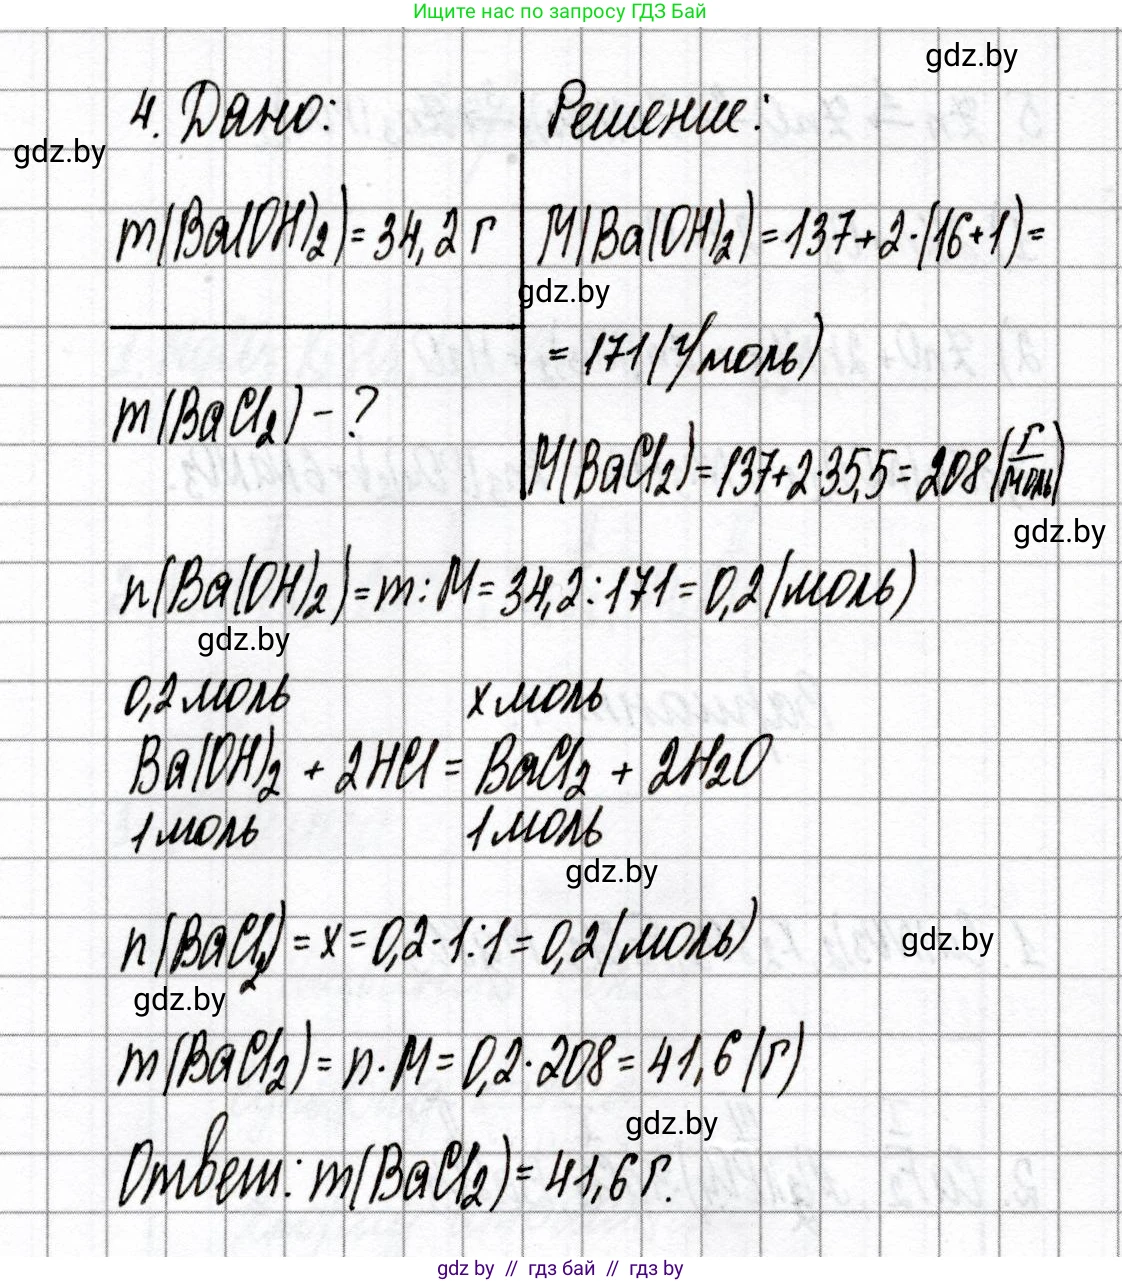 Ищите нас по запросу ГДЗ Бай
gdz.by
4. Дано:
Решение:
gdz.by
m(Ba(OH)₂) = 34,2 г
M(Ba(OH)₂) = 137 + 2·(16+1) =
gdz.by
= 171 (г/моль)
m(BaCl₂) - ?
M(BaCl₂) = 137 + 2·35,5 = 208 (г/моль)
gdz.by
n(Ba(OH)₂) = m : M = 34,2 : 171 = 0,2 (моль)
gdz.by
0,2 моль x моль
Ba(OH)₂ + 2HCl = BaCl₂ + 2H₂O
1 моль 1 моль
gdz.by
n(BaCl₂) = x = 0,2·1:1 = 0,2 (моль)
gdz.by
gdz.by
m(BaCl₂) = n·M = 0,2·208 = 41,6 (г)
gdz.by
Ответ: m(BaCl₂) = 41,6 г.
gdz by // гдз бай // гдз by